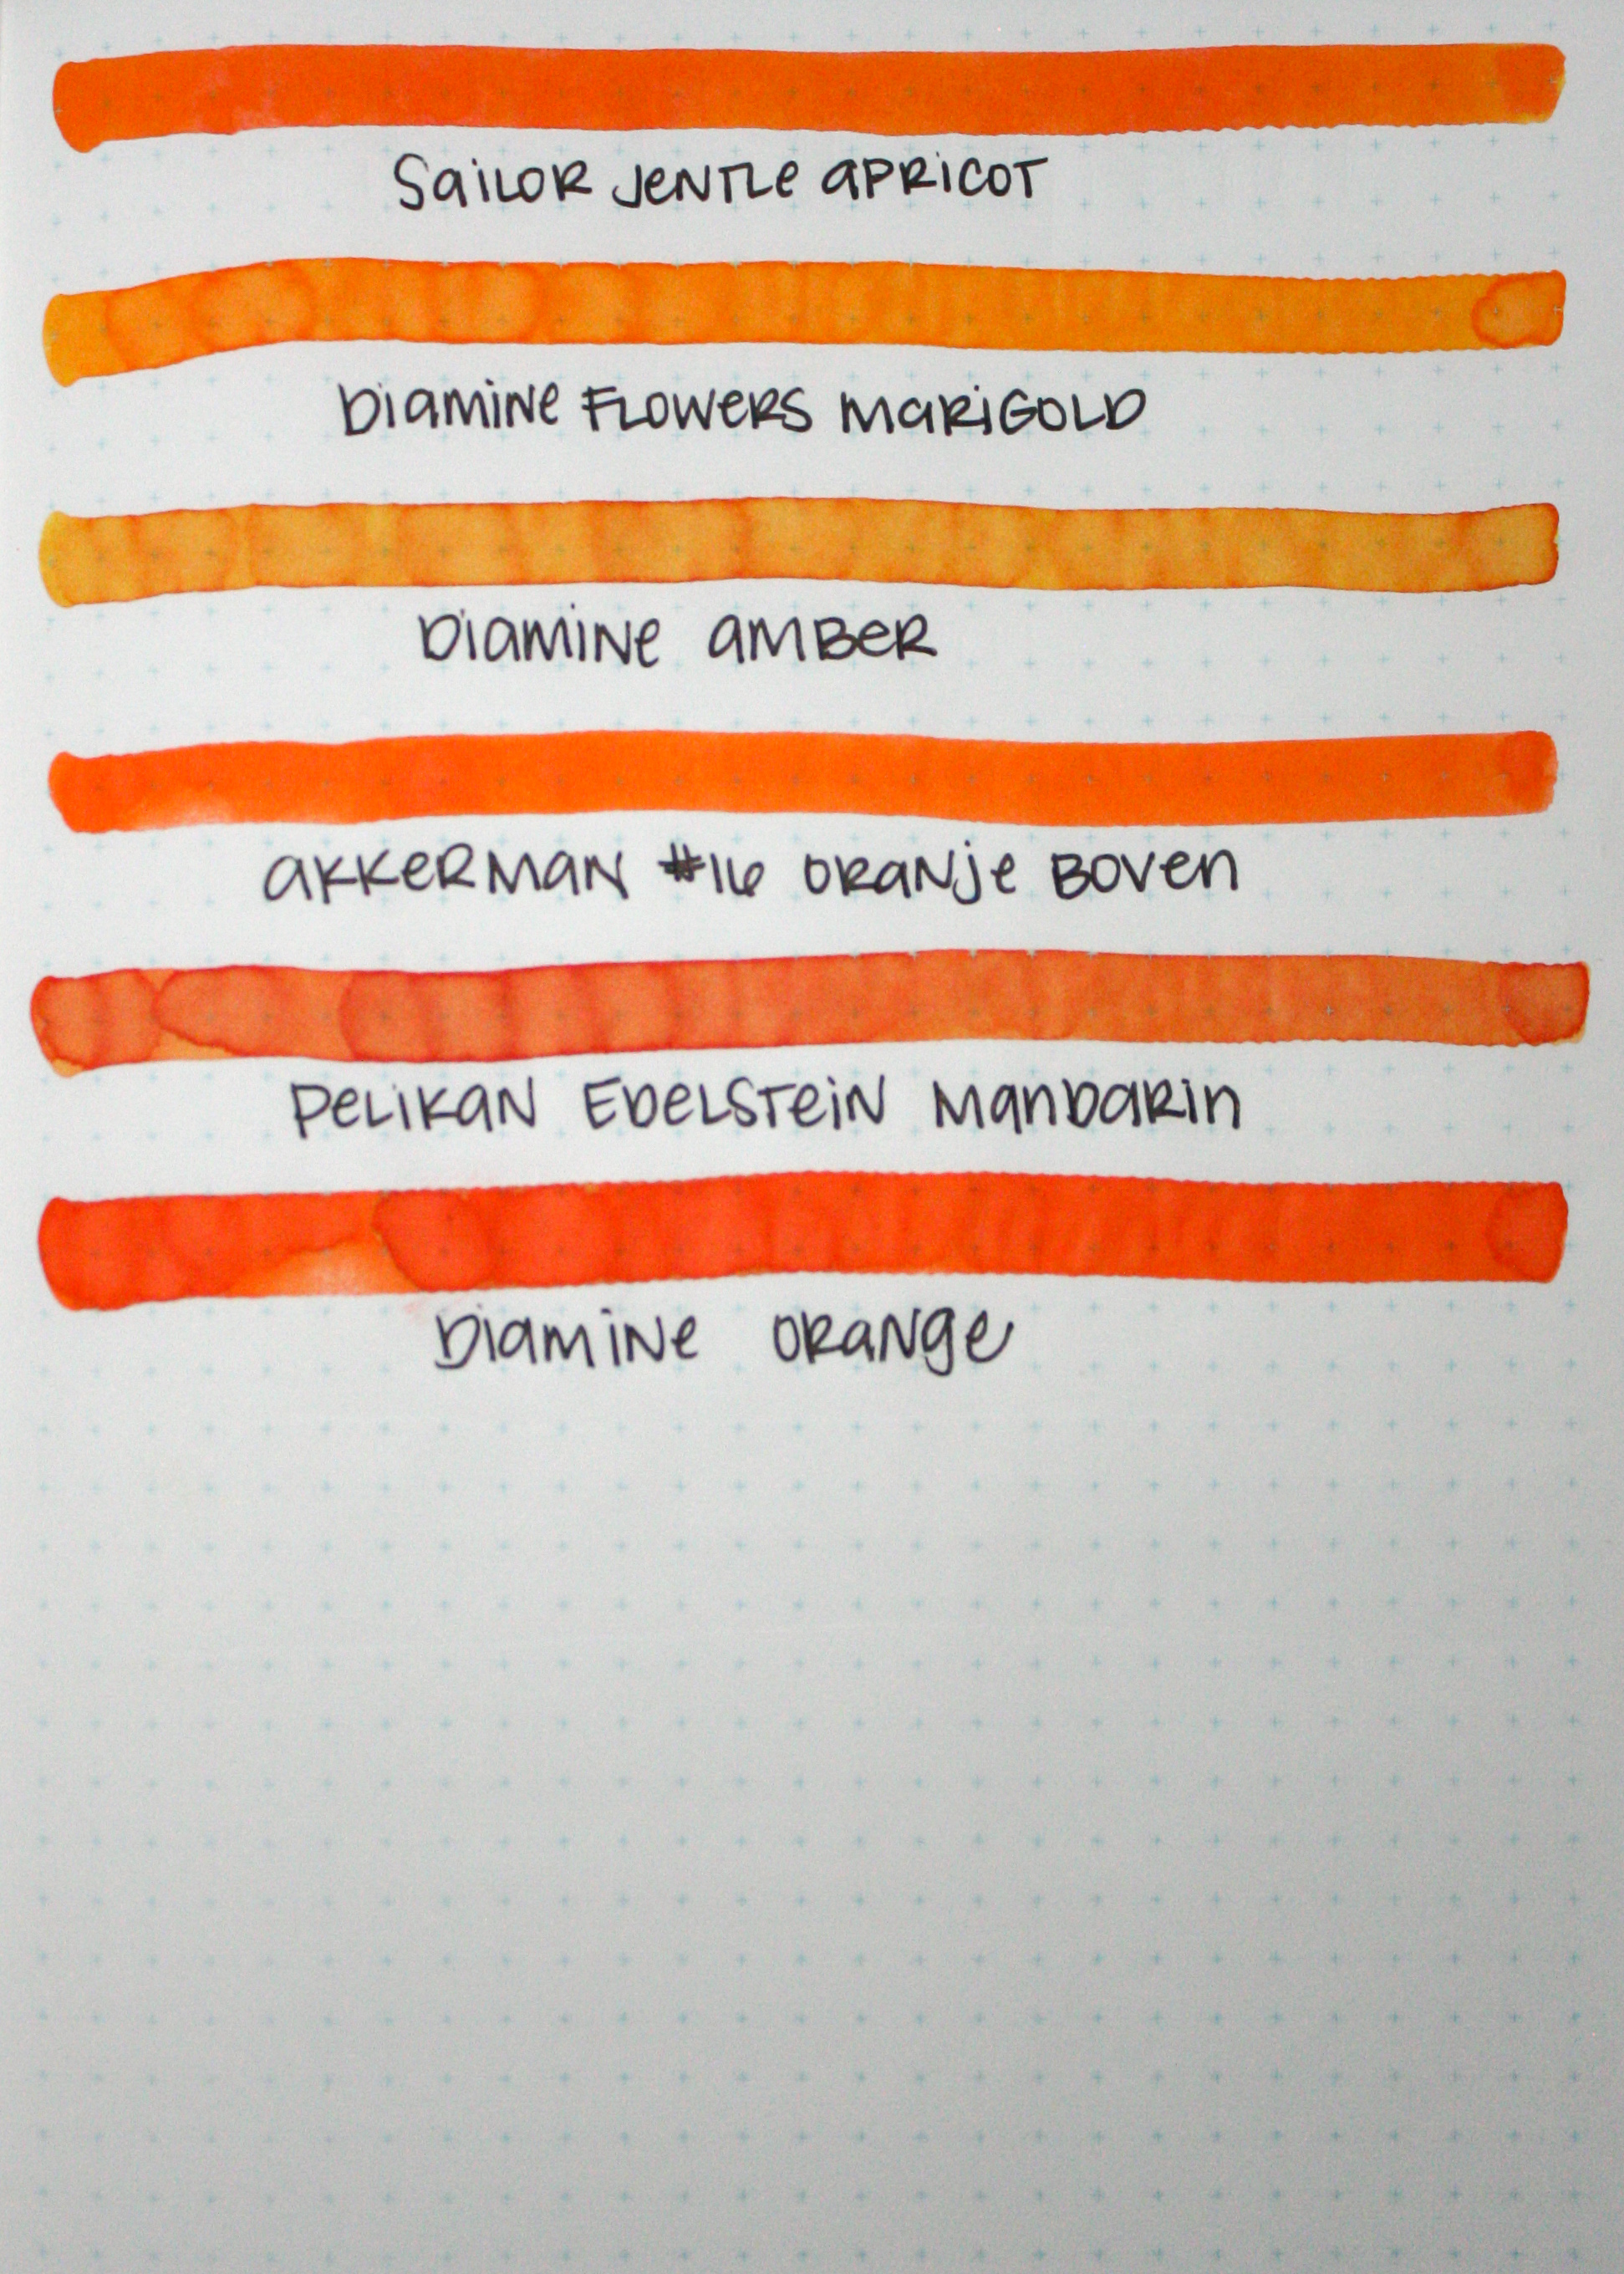 Sailor Jentle Apricot
Diamine Flowers Marigold
Diamine Amber
Akkerman #16 Oranje Boven
Pelikan Edelstein Mandarin
Diamine Orange